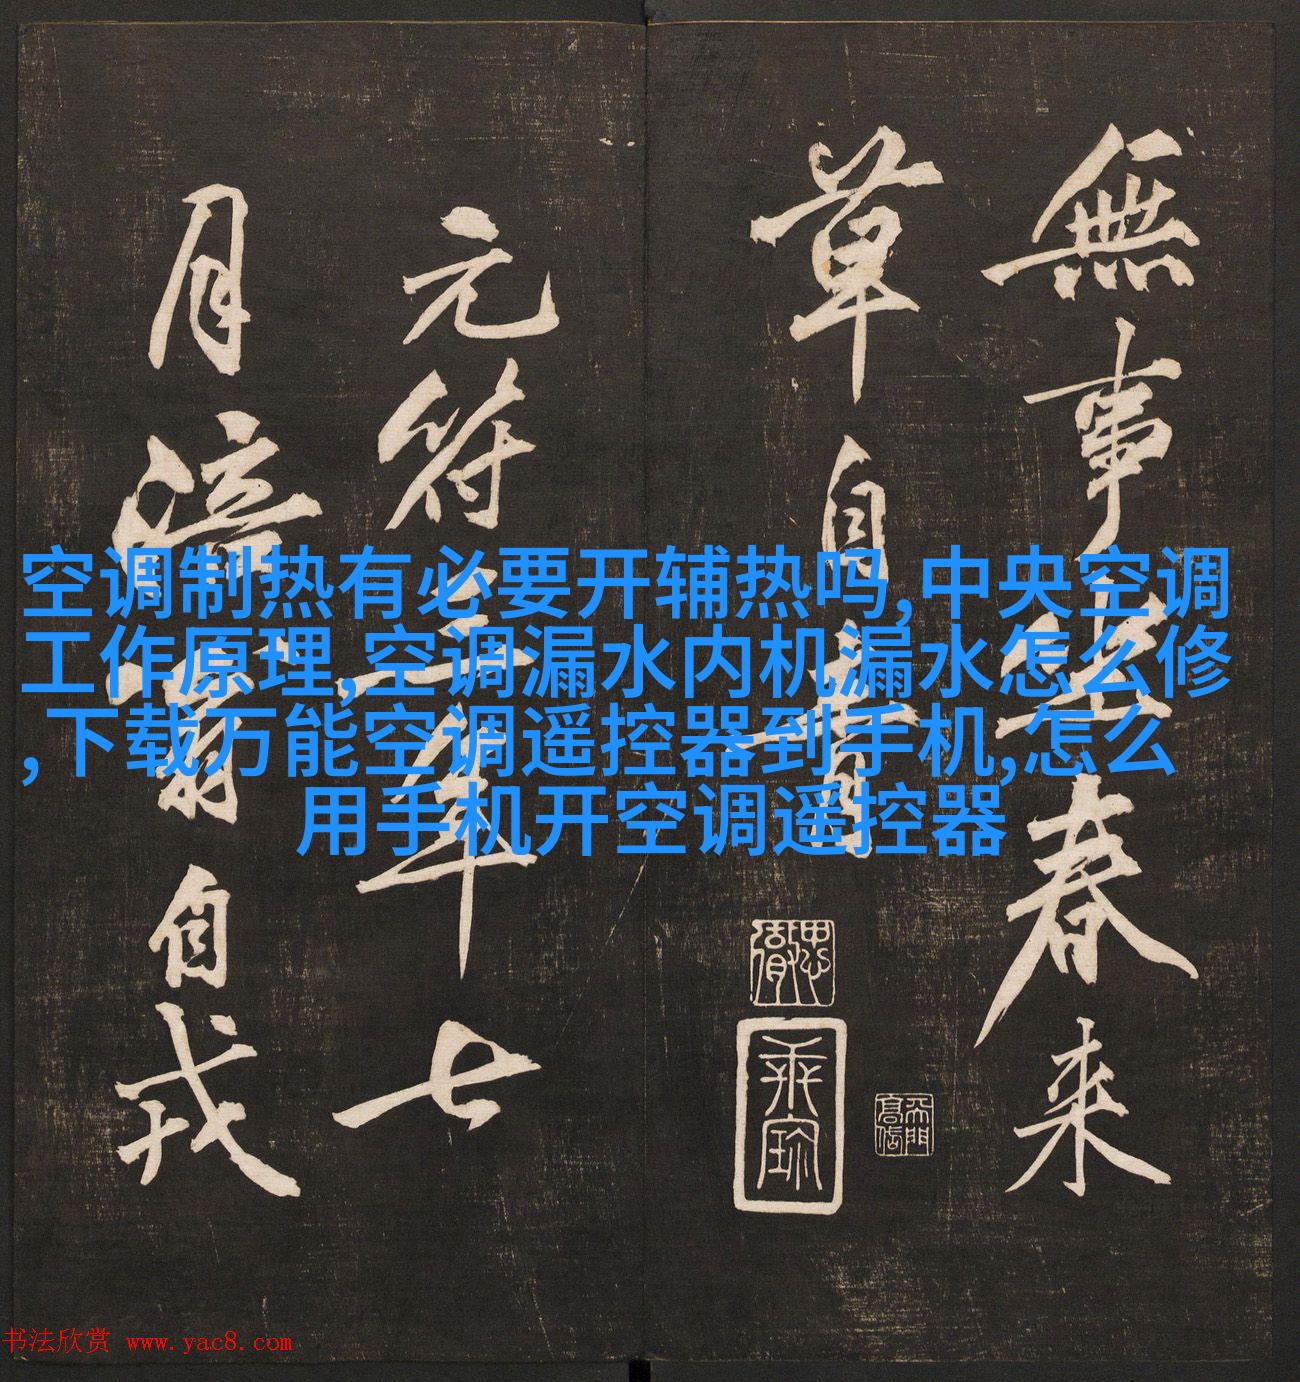 無事此春来
草自青
元符三年七
月涪翁自戎
空调制热有必要开辅热吗,中央空调
工作原理,空调漏水内机漏水怎么修
,下载万能空调遥控器到手机,怎么
用手机开空调遥控器
书法欣赏 www.yac8.com